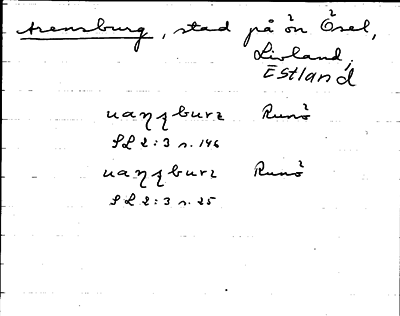 Arensburg, stad på ön Ösel,
Livland,
Estland
uaŋʒburʒ Runö
SL 2:3 s. 146
uaŋʒburʒ Runö
SL 2:3 s. 25